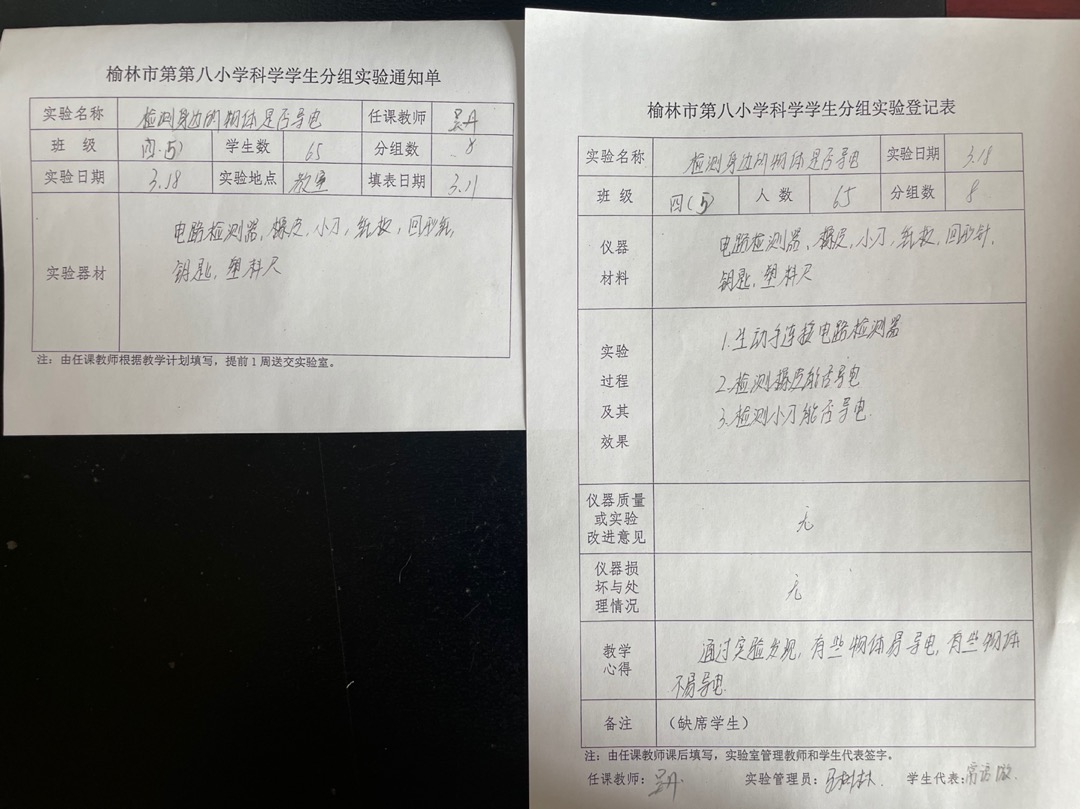 榆林市第第八小学科学学生分组实验通知单
实验名称 检测身边的物体是否导电 任课教师 吴丹
班 级 四(5) 学生数 65 分组数 8
实验日期 3.18 实验地点 教室 填表日期 3.11
实验器材
电路检测器,橡皮,小刀,纸板,回形
钥匙,塑料尺
注:由任课教师根据教学计划填写,提前1周送交实验室。
榆林市第八小学科学学生分组实验登记表
实验名称 检测身边的物体是否导电 实验日期 3.18
班 级 四(5) 人 数 65 分组数 8
仪器
材料
电路检测器、橡皮,小刀,纸板,回形针,
钥匙,塑料尺
实验
过程
及其
效果
1.生动手连接电路检测器
2.检测橡皮能否导电
3.检测小刀能否导电.
仪器质量
或实验
改进意见
无
仪器损
坏与处
理情况
无
教学
心得
通过实验发现,有些物体易导电,有些物体
不易导电.
备注 (缺席学生)
注:由任课教师课后填写,实验室管理教师和学生代表签字。
任课教师:吴丹 实验管理员: 学生代表: